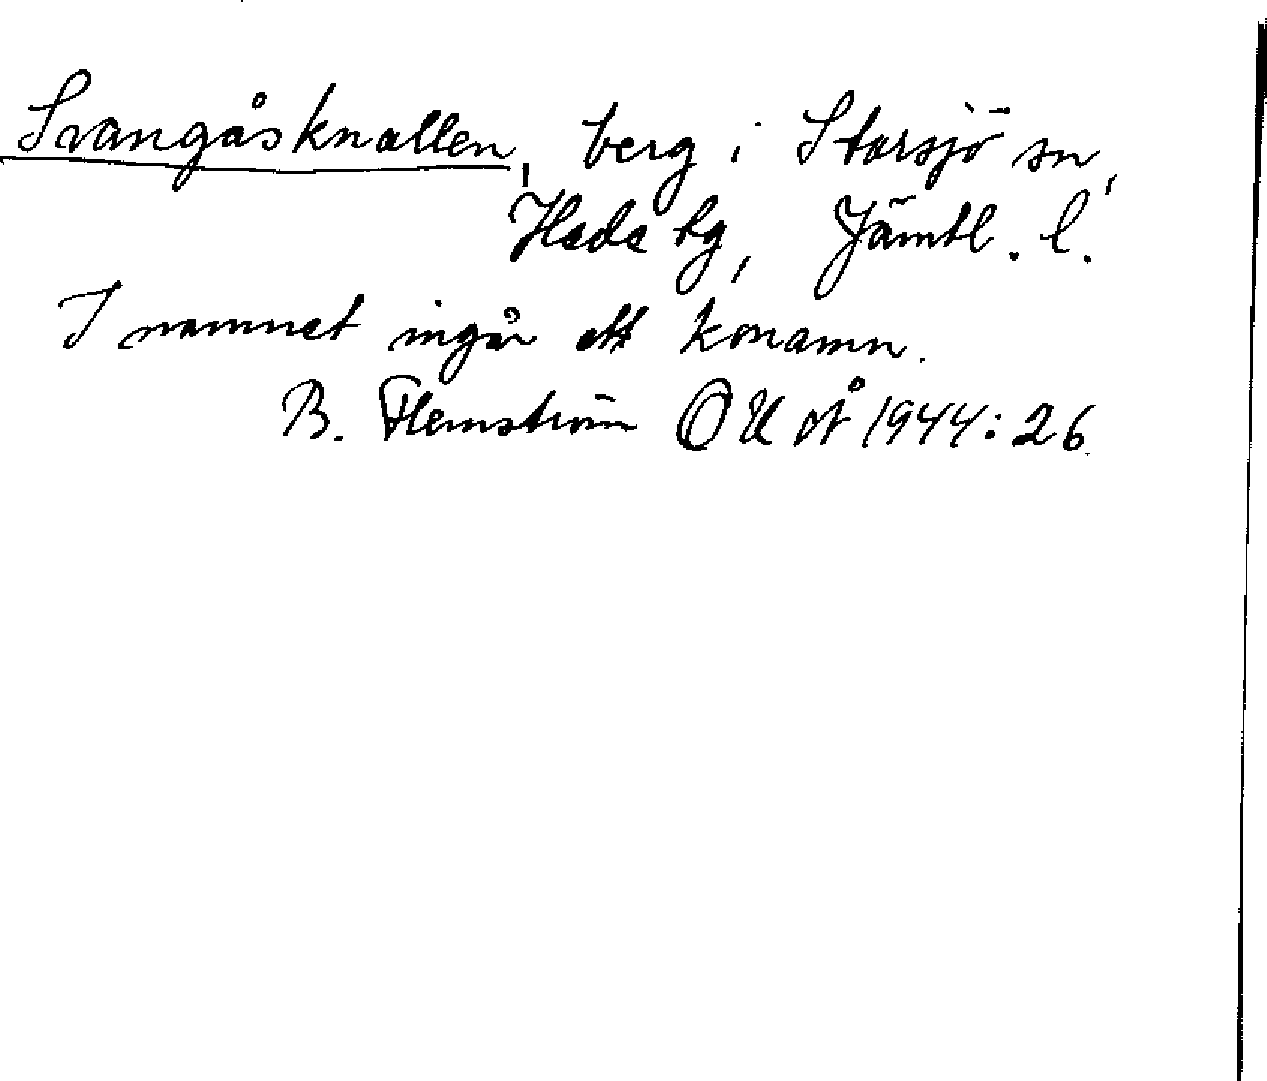 Svangåsknallen, berg i Storsjö sn,
Hede tg, Jämtl. l.
I namnet ingår ett konamn.
B. Flemström OUÅ 1944: 26